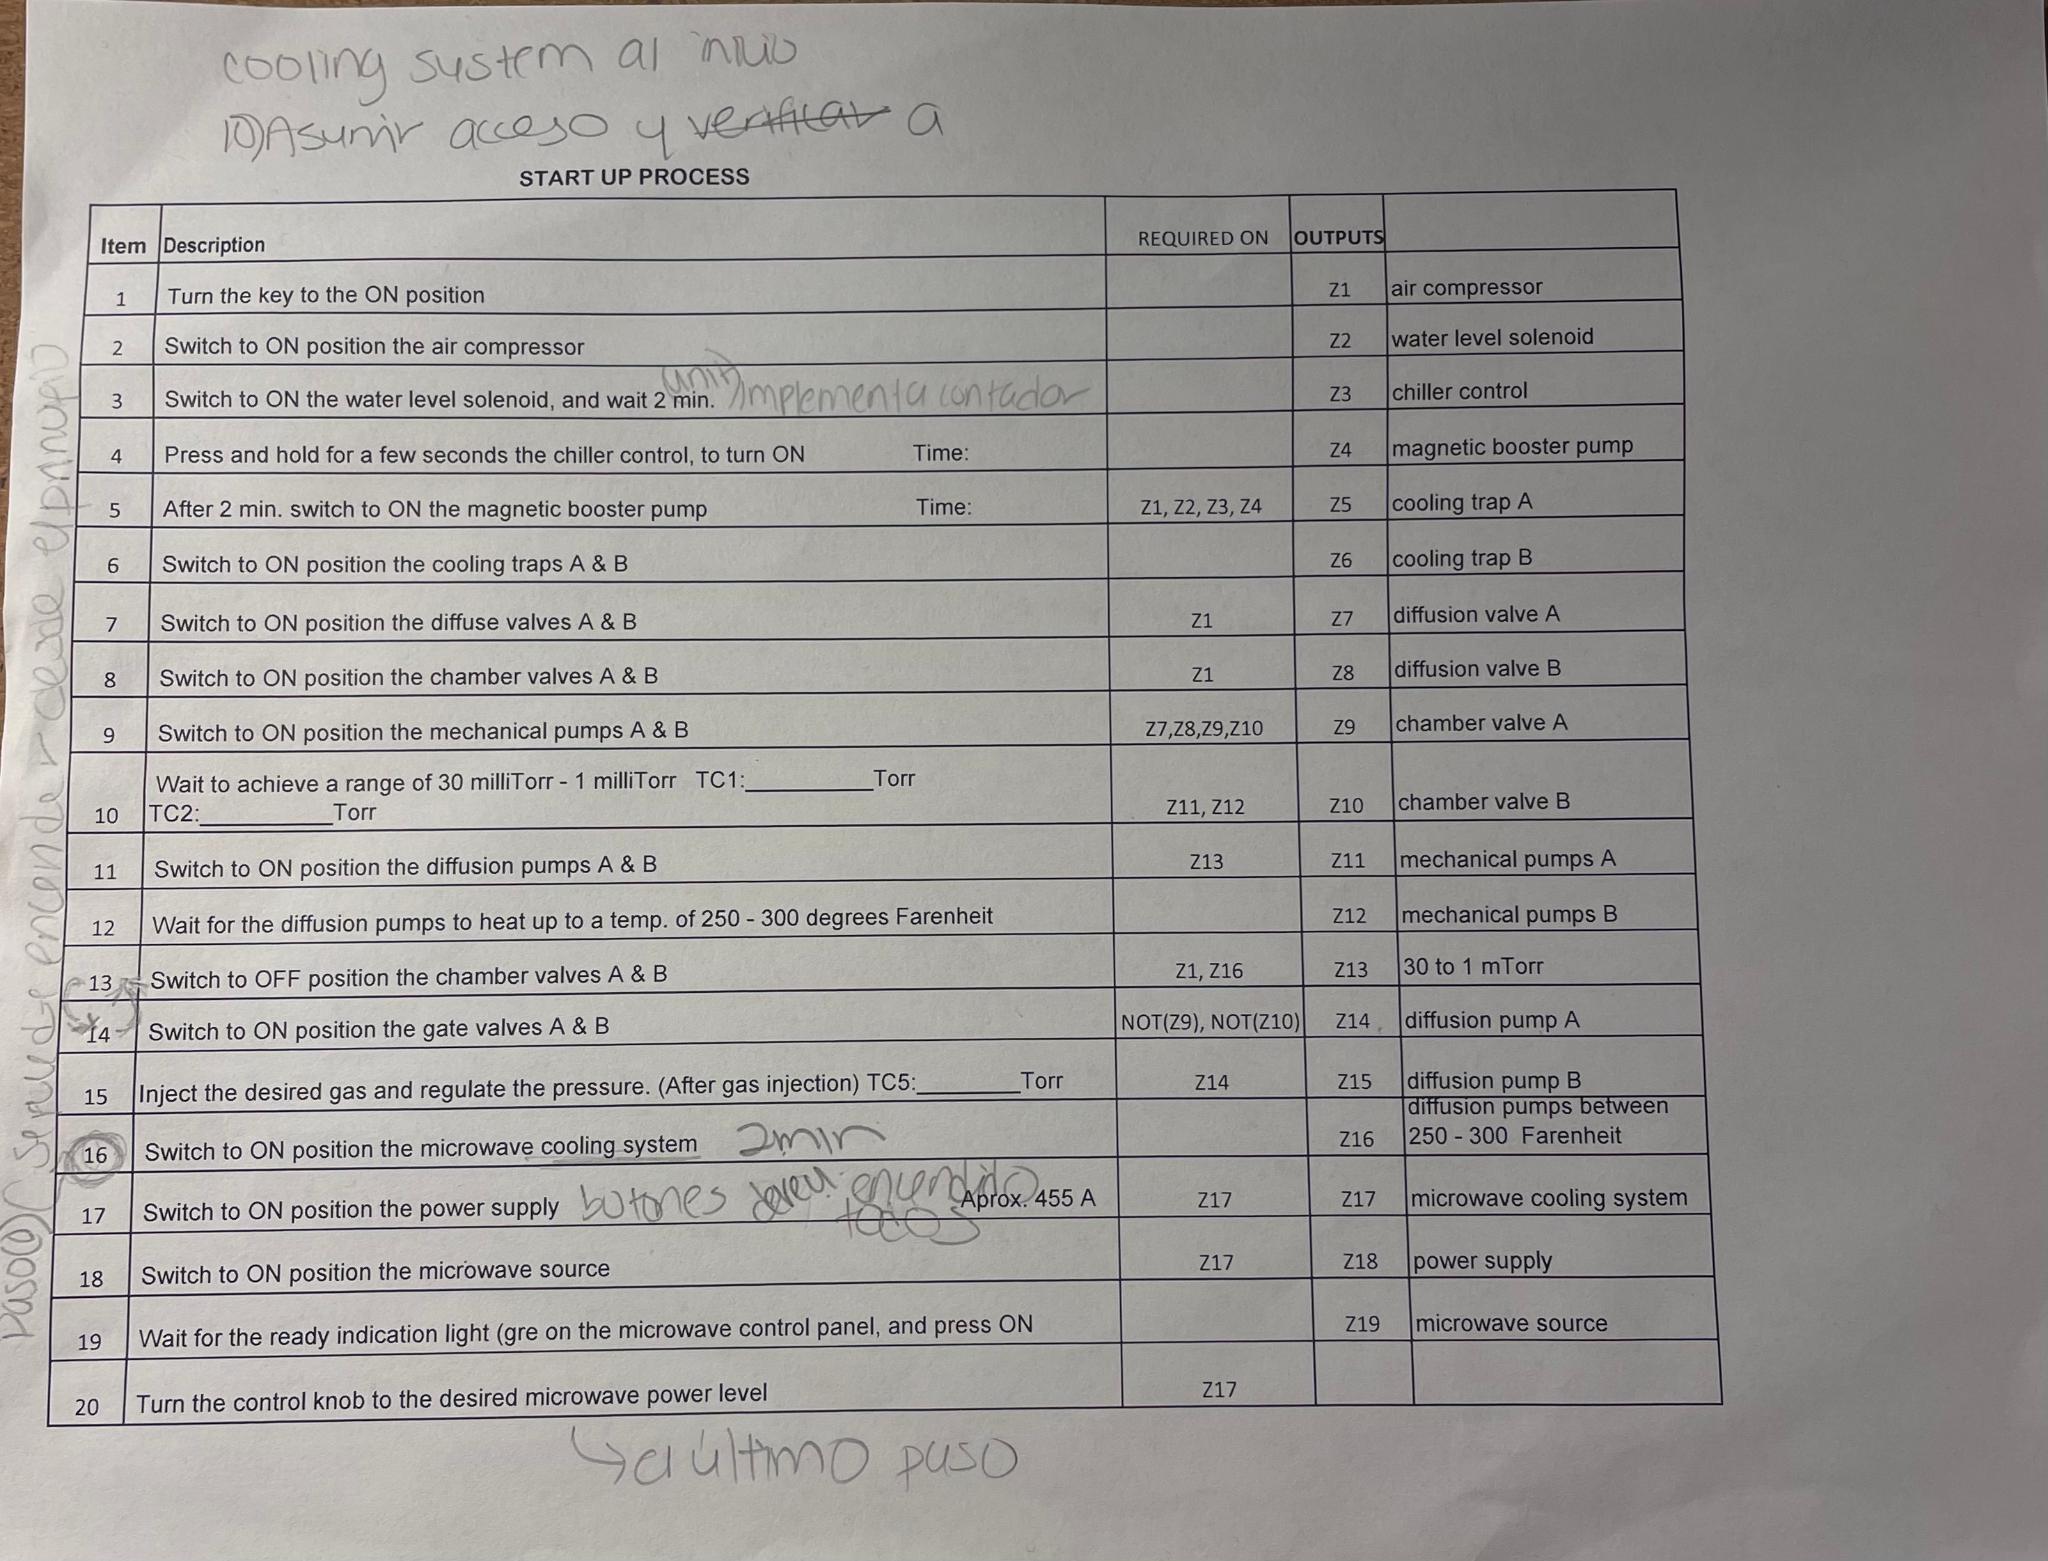 cooling system al inicio
10) Asumir acceso y verificar a
START UP PROCESS
Item Description REQUIRED ON OUTPUTS
1 Turn the key to the ON position Z1 air compressor
2 Switch to ON position the air compressor Z2 water level solenoid
3 Switch to ON the water level solenoid, and wait 2 min. implementa contador Z3 chiller control
4 Press and hold for a few seconds the chiller control, to turn ON Time: Z4 magnetic booster pump
5 After 2 min. switch to ON the magnetic booster pump Time: Z1, Z2, Z3, Z4 Z5 cooling trap A
6 Switch to ON position the cooling traps A & B Z6 cooling trap B
7 Switch to ON position the diffuse valves A & B Z1 Z7 diffusion valve A
8 Switch to ON position the chamber valves A & B Z1 Z8 diffusion valve B
9 Switch to ON position the mechanical pumps A & B Z7,Z8,Z9,Z10 Z9 chamber valve A
Wait to achieve a range of 30 milliTorr - 1 milliTorr TC1:__________Torr
10 TC2:__________Torr Z11, Z12 Z10 chamber valve B
11 Switch to ON position the diffusion pumps A & B Z13 Z11 mechanical pumps A
12 Wait for the diffusion pumps to heat up to a temp. of 250 - 300 degrees Farenheit Z12 mechanical pumps B
13 Switch to OFF position the chamber valves A & B Z1, Z16 Z13 30 to 1 mTorr
14 Switch to ON position the gate valves A & B NOT(Z9), NOT(Z10) Z14 diffusion pump A
15 Inject the desired gas and regulate the pressure. (After gas injection) TC5:________Torr Z14 Z15 diffusion pump B
diffusion pumps between
16 Switch to ON position the microwave cooling system 2min Z16 250 - 300 Farenheit
17 Switch to ON position the power supply botones encendido Aprox. 455 A Z17 Z17 microwave cooling system
todos
18 Switch to ON position the microwave source Z17 Z18 power supply
19 Wait for the ready indication light (gre on the microwave control panel, and press ON Z19 microwave source
20 Turn the control knob to the desired microwave power level Z17
al último paso
paso 1 se puede encender desde el principio